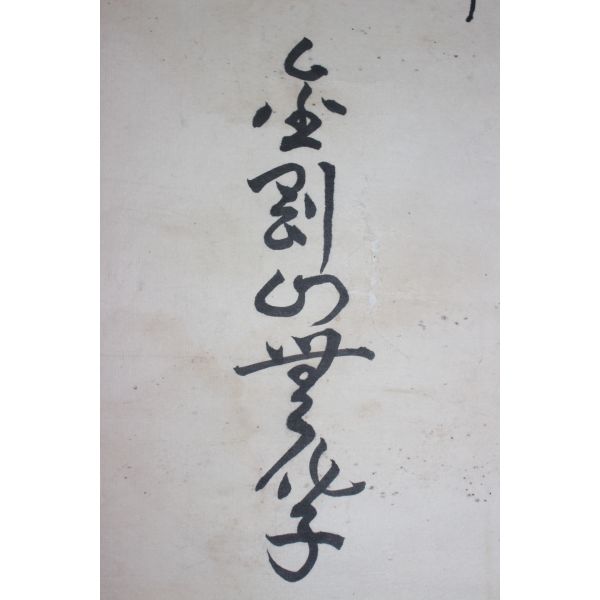 金剛山無学